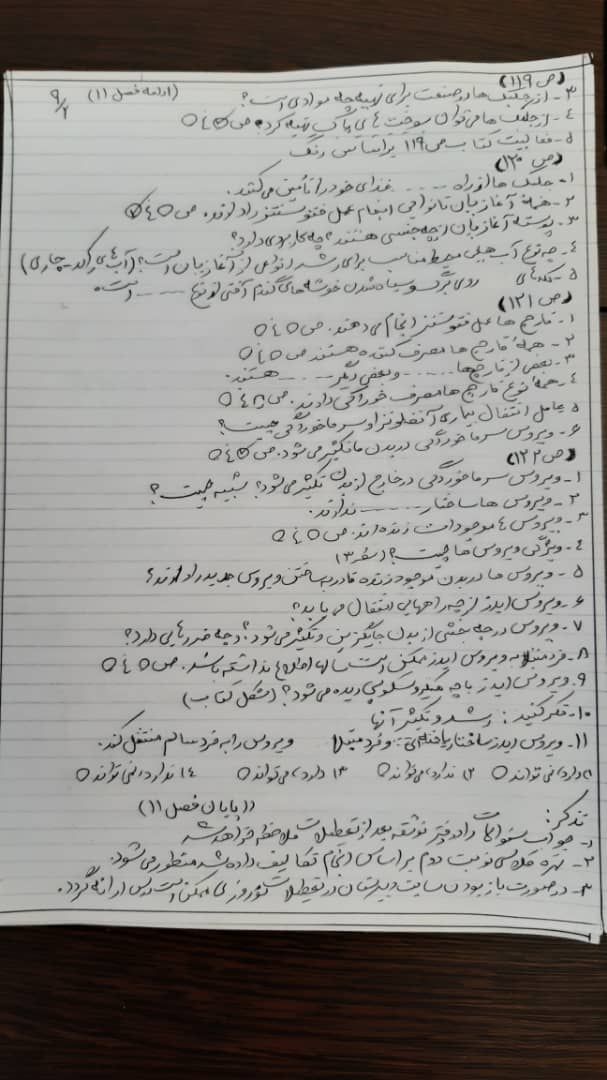 (ص ۱۱۹) (ادامه فصل ۱۱) ۹/۲
۳- از جلبک ها در صنعت برای تهیه چه موادی است؟
۴- از جلبک ها می توان سوخت های پاک تهیه کرد؟ ص O غ O
۵- فعالیت کتاب ص ۱۱۹ براساس رنگ
(ص ۱۲۰)
۱- جلبک ها از راه ...... غذای خود را تأمین می کنند.
۲- همهٔ آغازیان توانایی انجام عمل فتوسنتز را دارند. ص O غ O
۳- پوستهٔ آغازیان از چه جنسی هستند؟ چه کاربردی دارد؟
۴- چه نوع آب هایی محیط مناسب برای رشد انواعی از آغازیان است؟ (آب های راکد - جاری)
۵- لکه های روی برگ و سیاه شدن خوشه های گندم آفتی از نوع ...... است.
(ص ۱۲۱)
۱- قارچ ها عمل فتوسنتز انجام می دهند. ص O غ O
۲- همهٔ قارچ ها مصرف کننده هستند ص O غ O
۳- بعضی از قارچ ها ...... و بعضی دیگر ...... هستند.
۴- همهٔ نوع قارچ ها مصرف خوراکی دارند. ص O غ O
۵- عامل انتقال بیماری آنفلونزا و سرماخوردگی چیست؟
۶- ویروس سرماخوردگی در بدن ما تکثیر می شود. ص O غ O
(ص ۱۲۲)
۱- ویروس سرماخوردگی در خارج از بدن تکثیر می شود؟ شبیه چیست؟
۲- ویروس ها ساختار ...... ندارند.
۳- ویروس ها موجودات زنده اند. ص O غ O
۴- ویژگی ویروس ها چیست؟ (سطر ۳)
۵- ویروس ها در بدن موجود زنده قادر به ساختن ویروس جدید را دارند؟
۶- ویروس ایدز از چه راههایی انتقال می یابد؟
۷- ویروس در چه بخشی از بدن جایگزین و تکثیر می شود؟ و چه ضررهایی دارد؟
۸- فرد مبتلا به ویروس ایدز ممکن است سالها اطلاع نداشته باشد. ص O غ O
۹- ویروس ایدز با چه میکروسکوپی دیده می شود؟ (شکل کتاب)
۱۰- فکر کنید: رشد و تکثیر آنها
۱۱- ویروس ایدز ساختار یاخته ای ...... و فرد مبتلا ویروس را به فرد سالم منتقل کند.
۱) دارد، نمی تواند O ۲) ندارد، می تواند O ۳) دارد، می تواند O ۴) ندارد، نمی تواند O
((پایان فصل ۱۱)
تذکر:
۱- جواب سئوالات را در دفتر نوشته بعد از تعطیلات ملاحظه خواهد شد
۲- نمره کلاسی نوبت دوم بر اساس انجام تکالیف داده شده منظور می شود.
۳- در صورت باز بودن سایت دبیرستان در تعطیلات نوروزی ممکن است درس ارائه گردد.